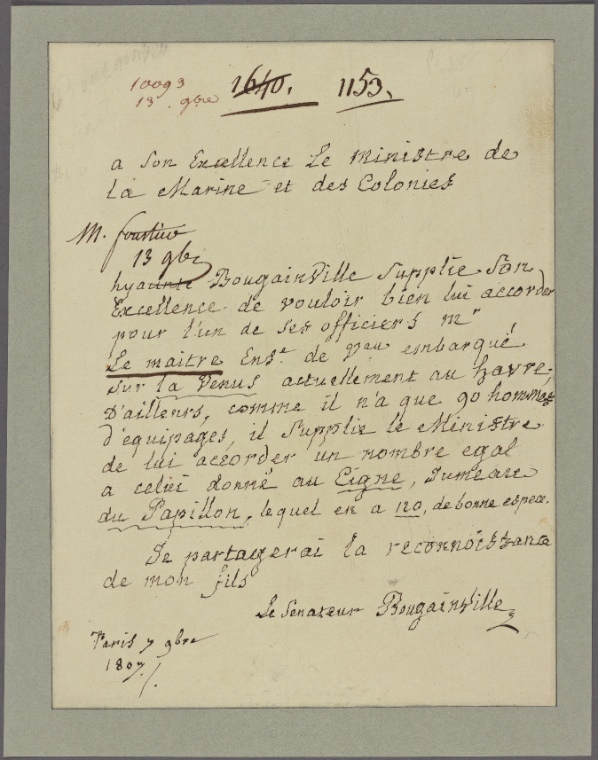 10093
13. 9bre
1640. 1153.
a Son Excellence Le ministre de
la Marine et des Colonies
M.
13 9bre
hyacinte BougainVille Supplie Son
Excellence de vouloir bien lui accorder
pour l'un de Ses officiers mr
Le maitre Ense de Vau embarqué
Sur la Venus actuellement au havre;
D'ailleurs, comme il n'a que 90 hommes
d'equipages, il Supplie le Ministre
de lui accorder un nombre egal
a celui donné au Cigne, Jumeau
du Papillon, lequel en a 120, de bonne espece.
Je partagerai la reconnoissance
de mon fils
Le Senateur BougainVille
Paris 7 9bre
1807./.